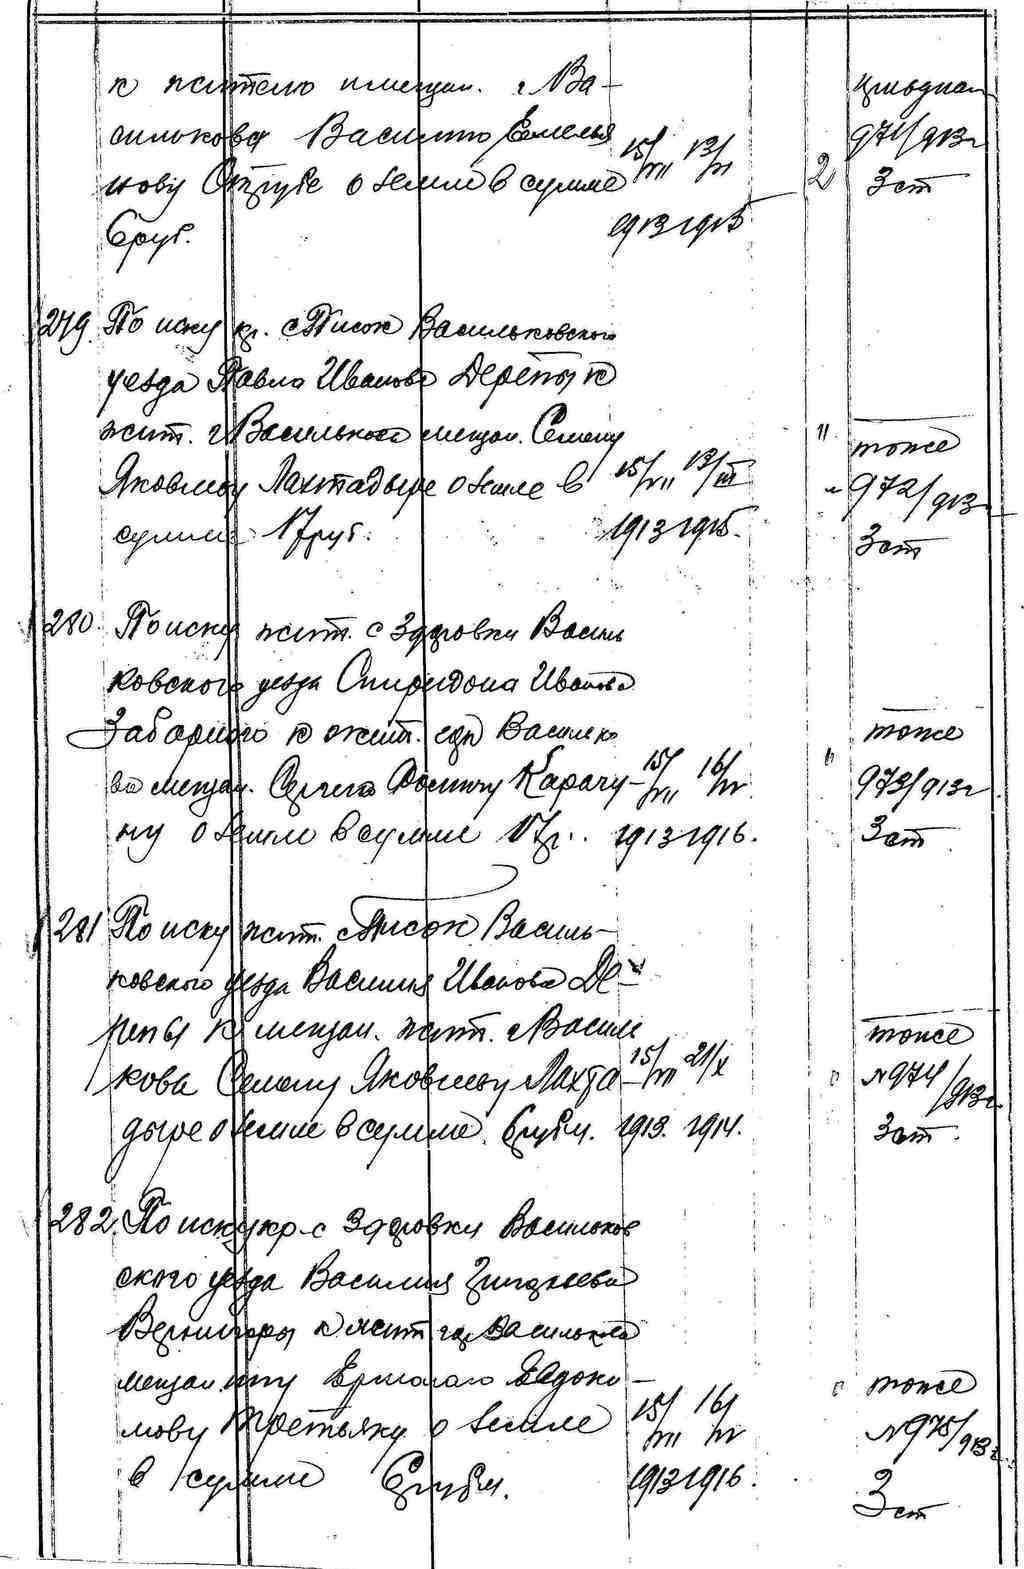 к жителю и мещан. г. Ва-
силькова Василию Емелья
нову о земле в сумме 15/VII 13/VI 2
6 руб. 1913 1915
971/913г
3 ст
279. По иску кр. с. Плисок Васильковского
уезда Павла Иванова Дерепы к
жит. г. Василькова мещан. Семену
Яковлеву Лахтадыре о земле в 15/VII 13/III
сумме 17 руб. 1913 1915.
" тоже
972/913г
3 ст
280. По иску жит. с. Здоровки Василь
ковского уезда Спиридона Иванова
Забарного к жит. гор. Василько
ва мещан. Сергею Карачу- 15/VII 16/IV
ну о земле в сумме 17 р. 1913 1916.
" тоже
973/913г
3 ст
281 По иску жит. с. Плисок Василь-
ковского уезда Василия Иванова Де-
репы к мещан. жит. г. Василь
кова Семену Яковлеву Лахта- 15/VII 21/X
дыре о земле в сумме 6 рубл. 1913. 1914.
" тоже
№974/913г.
3 ст.
282. По иску кр. с. Здоровки Васильков
ского уезда Василия Григорьева
Вернигоры к жит. гор. Василькова
мещанину Ермолаю Евдоки-
мову Третьяку о земле 15/VII 16/IV
в сумме 6 рубл. 1913 1916.
" тоже
№975/913г.
3 ст